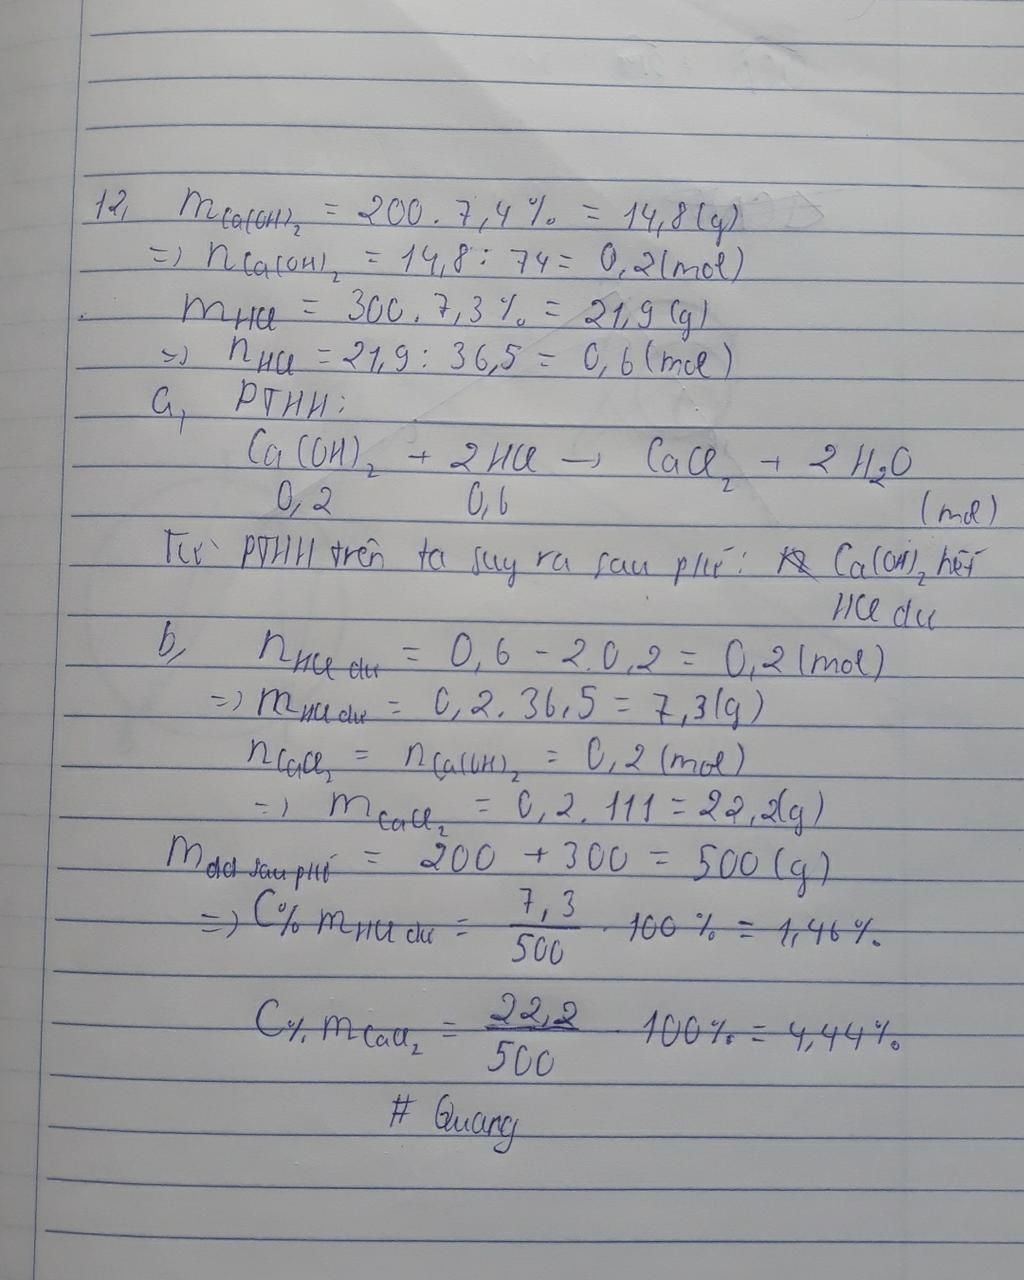 12, m Ca(OH)₂ = 200 . 7,4 % = 14,8 (g)
=> n Ca(OH)₂ = 14,8 : 74 = 0,2 (mol)
m HCl = 300 . 7,3 % = 21,9 (g)
=> n HCl = 21,9 : 36,5 = 0,6 (mol)
a, PTHH:
Ca(OH)₂ + 2HCl → CaCl₂ + 2H₂O
0,2 0,6 (mol)
Từ PTHH trên ta suy ra sau pứ: Ca(OH)₂ hết
HCl dư
b, n HCl dư = 0,6 - 2.0,2 = 0,2 (mol)
=> m HCl dư = 0,2 . 36,5 = 7,3 (g)
n CaCl₂ = n Ca(OH)₂ = 0,2 (mol)
=> m CaCl₂ = 0,2 . 111 = 22,2 (g)
m dd sau pứ = 200 + 300 = 500 (g)
=> C% m HCl dư = 7,3/500 . 100 % = 1,46 %
C% m CaCl₂ = 22,2/500 . 100 % = 4,44 %
# Quang